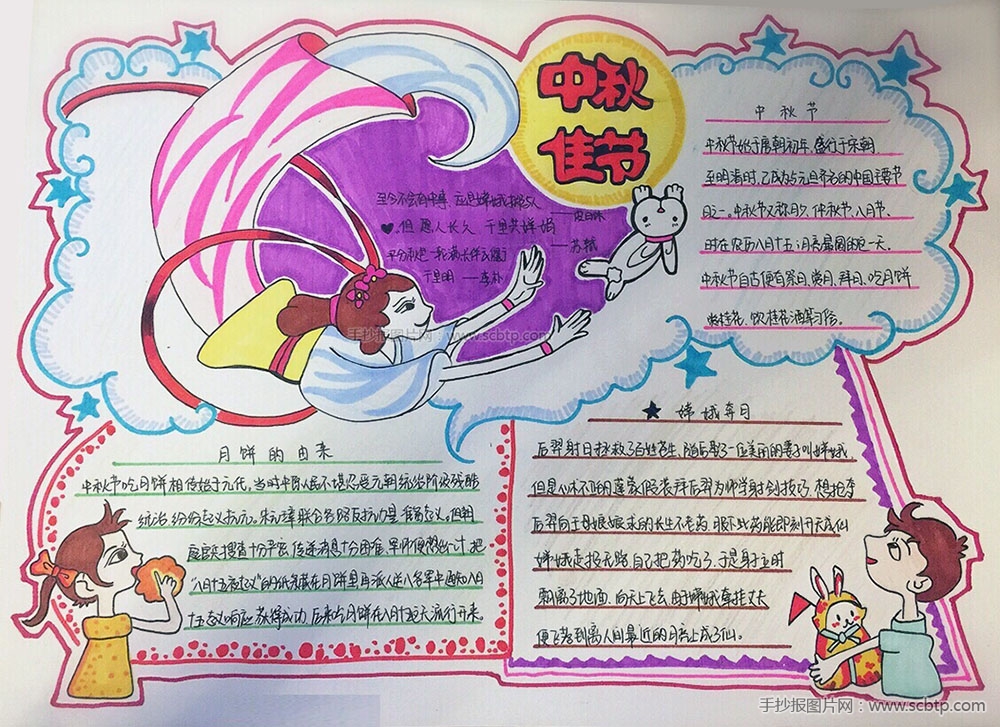 中秋
佳节
中秋节
中秋节始于唐朝初年，盛行于宋朝，
至明清时，已成为与元旦齐名的中国主要节
日之一。中秋节又称月夕、仲秋节、八月节
时在农历八月十五；月亮最圆的一天。
中秋节自古便有祭月、赏月、拜月、吃月饼
赏桂花、饮桂花酒等习俗。
但愿人长久，千里共婵娟
——苏轼
平分秋色一轮满，长伴云衢
千里明 ——李朴
手抄报图片网：www.scbtp.com
月饼的由来
中秋节吃月饼相传始于元代，当时中原人民不堪忍受元朝统治阶级残酷
统治，纷纷起义抗元。朱元璋联合各路反抗力量准备起义，但朝
庭官兵搜查十分严密，传递消息十分困难，军师便想出一计，把
“八月十五夜起义”的纸条藏在月饼里，再派人送入各军中通知八月
十五起义响应，获得成功，后来吃月饼在八月十五天流行开来。
嫦娥奔月
后羿射日拯救了百姓苍生，随后娶了一位美丽的妻子叫嫦娥，
但是心术不正的蓬蒙假装拜后羿为师学射剑技巧，想抢夺
后羿向王母娘娘求的长生不老药，服下此药能即刻升天成仙
嫦娥走投无路，自己把药吃了，于是身子立时
飘离了地面，向天上飞去，由于嫦娥牵挂丈夫
便飞落到离人间最近的月亮上成了仙。
手抄报图片网：www.scbtp.com